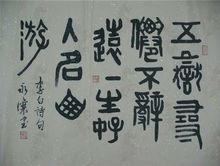 五嶽尋
僊不辭
遠一生好
入名山
游
李白詩句
永